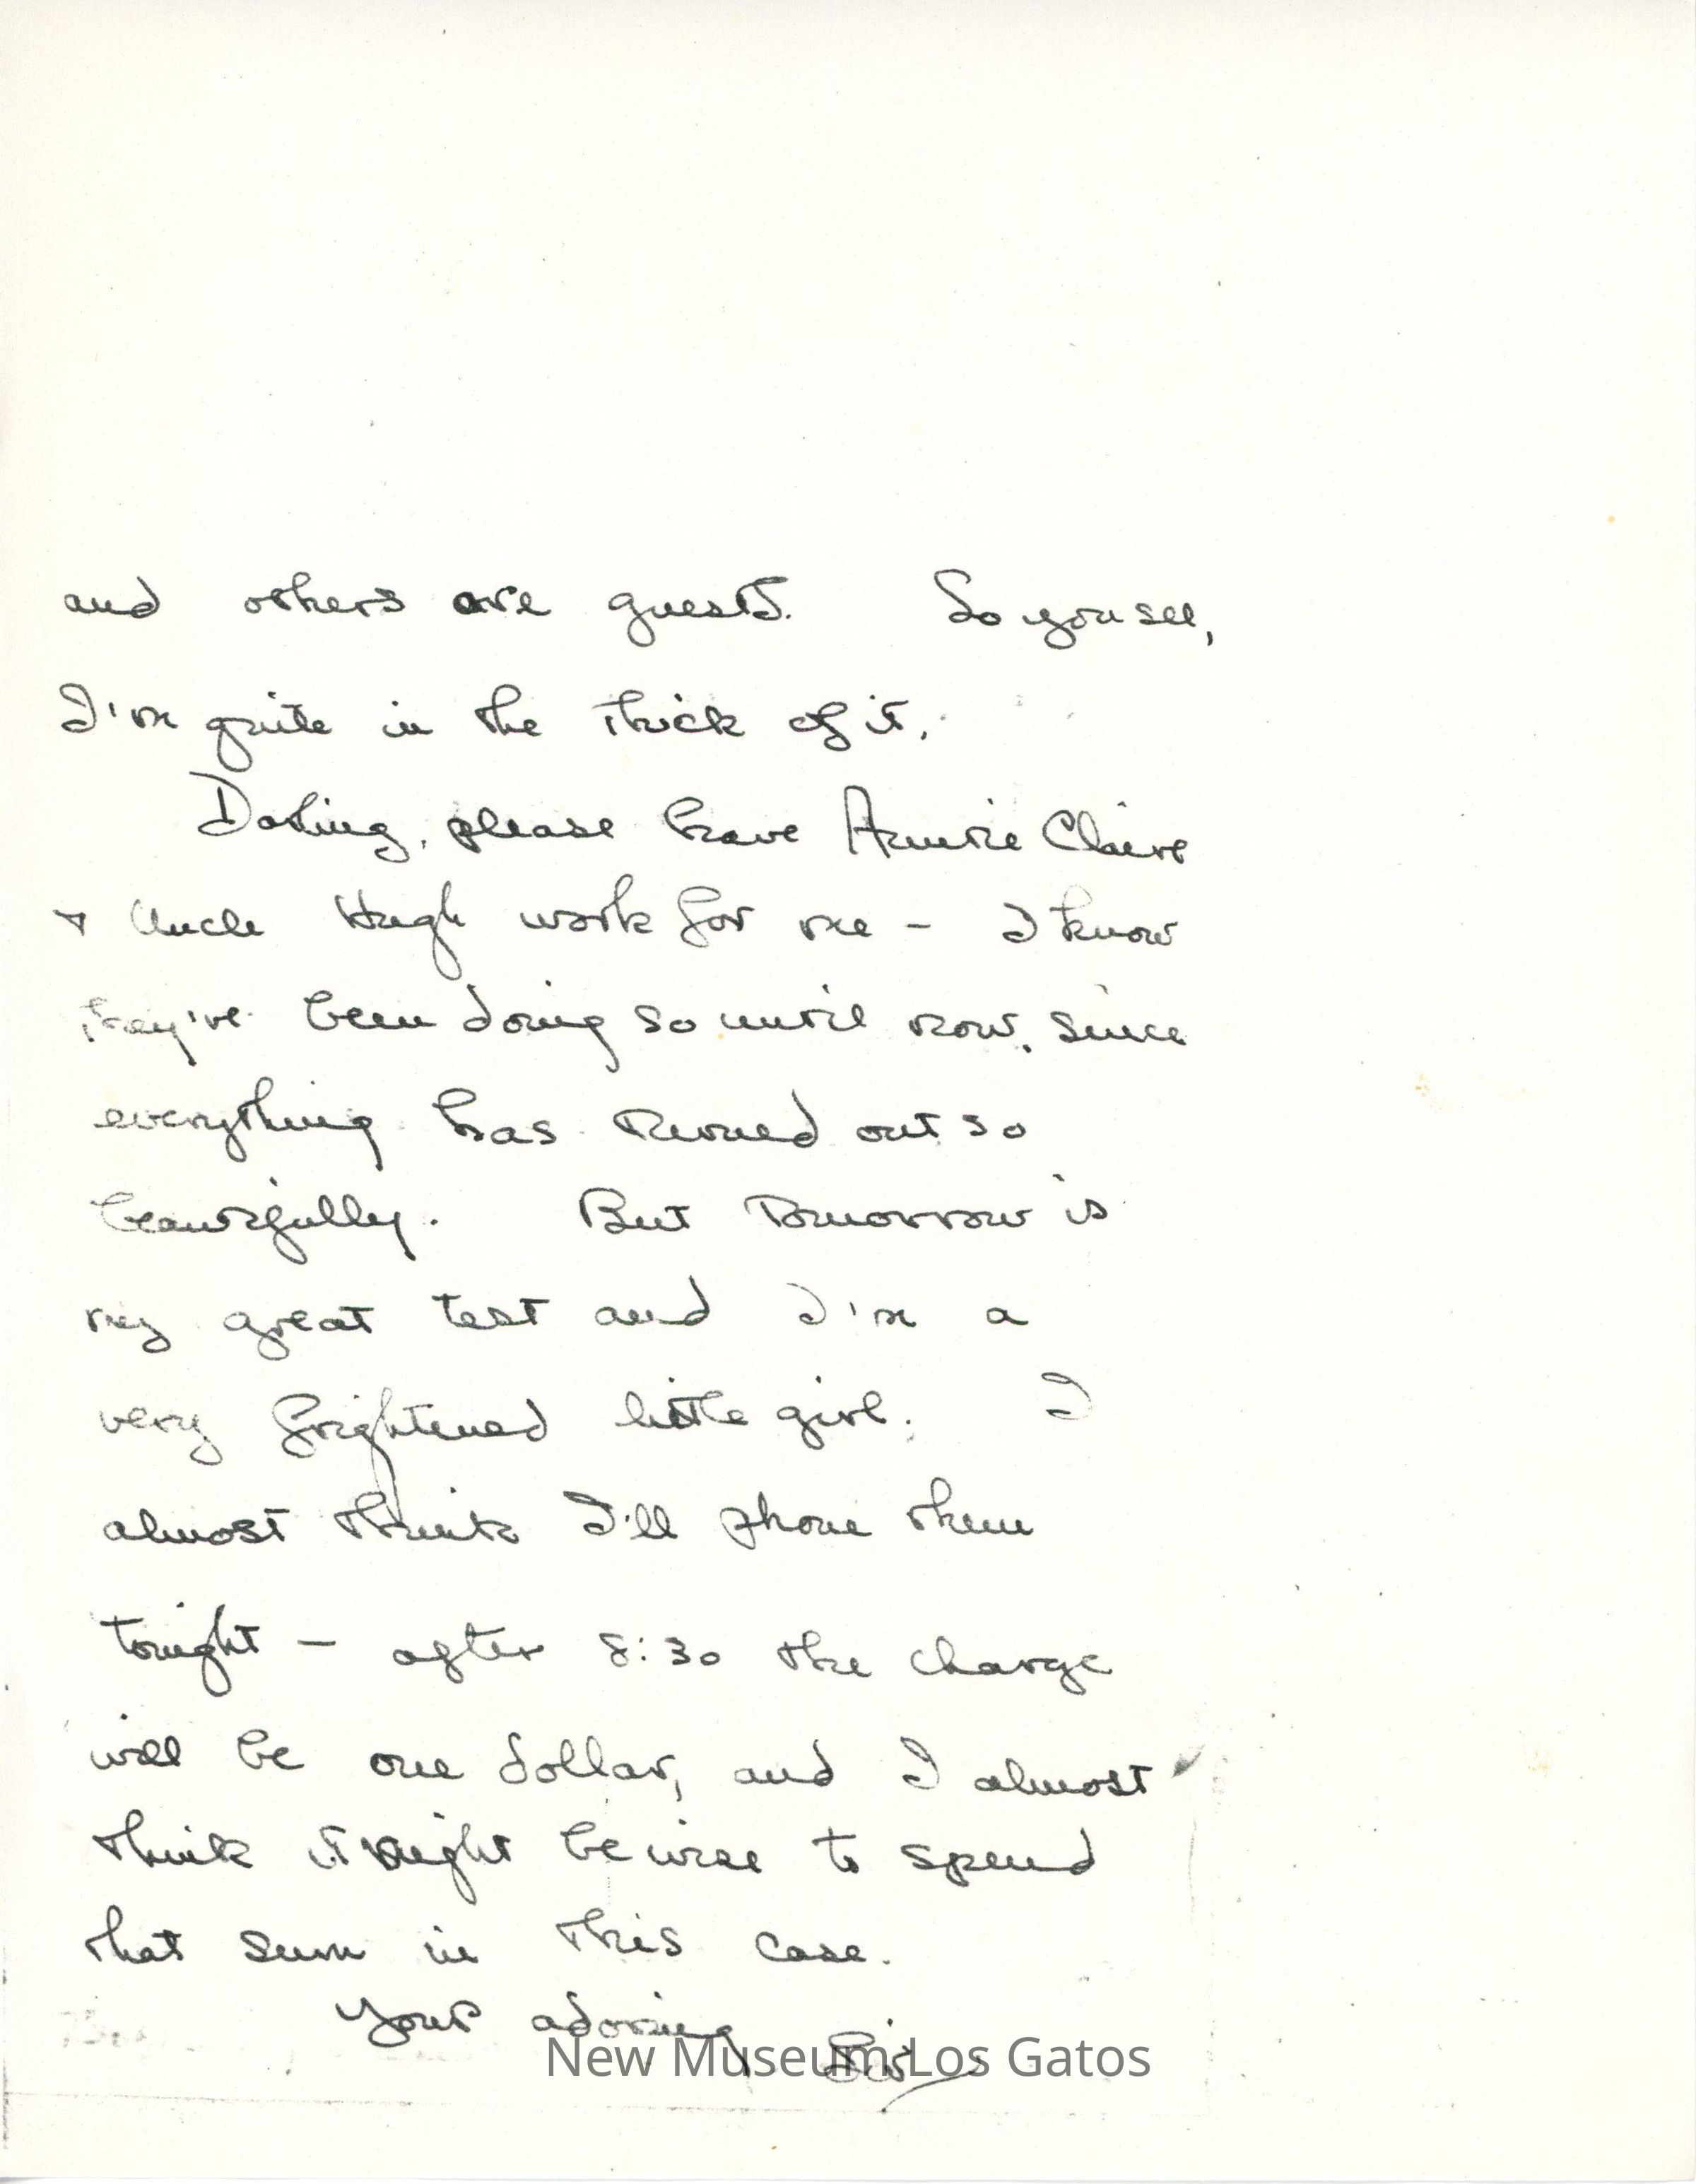 and others are guests. So you see,
I'm quite in the thick of it.
Darling, please have Auntie Claire
+ Uncle Hugh work for me - I know
they've been doing so until now, since
everything has turned out so
beautifully. But tomorrow is
my great test and I'm a
very frightened little girl. I
almost think I'll phone them
tonight - after 8:30 the charge
will be one dollar, and I almost
think it might be wise to spend
that sum in this case.
Your adoring
New Museum Los Gatos